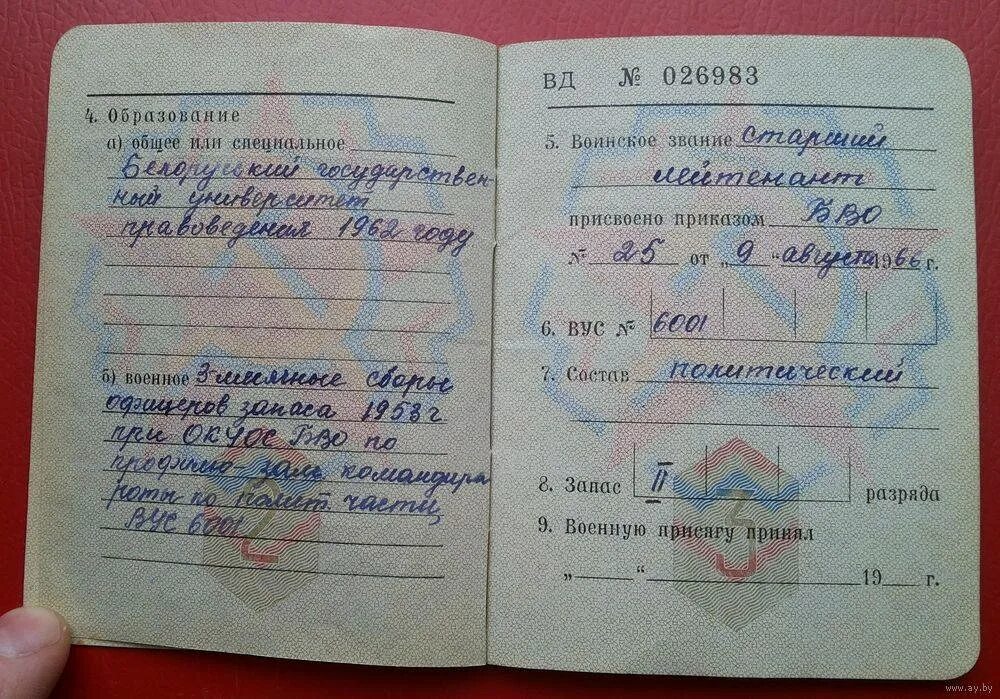 4. Образование
а) общее или специальное
Белоруский государствен-
ный университет
правоведения 1962 году
б) военное 3-месячные сборы
офицеров запаса 1953 г
при ОКУОС БВО по
профилю - зам командира
роты по полит. части
ВУС 6001
2
ВД № 026983
5. Воинское звание старший
лейтенант
присвоено приказом БВО
№ 25 от „9“ августа 1966 г.
6. ВУС № 6001
7. Состав политический
8. Запас II разряда
9. Военную присягу принял
„ “ 19 г.
3
www.ay.by